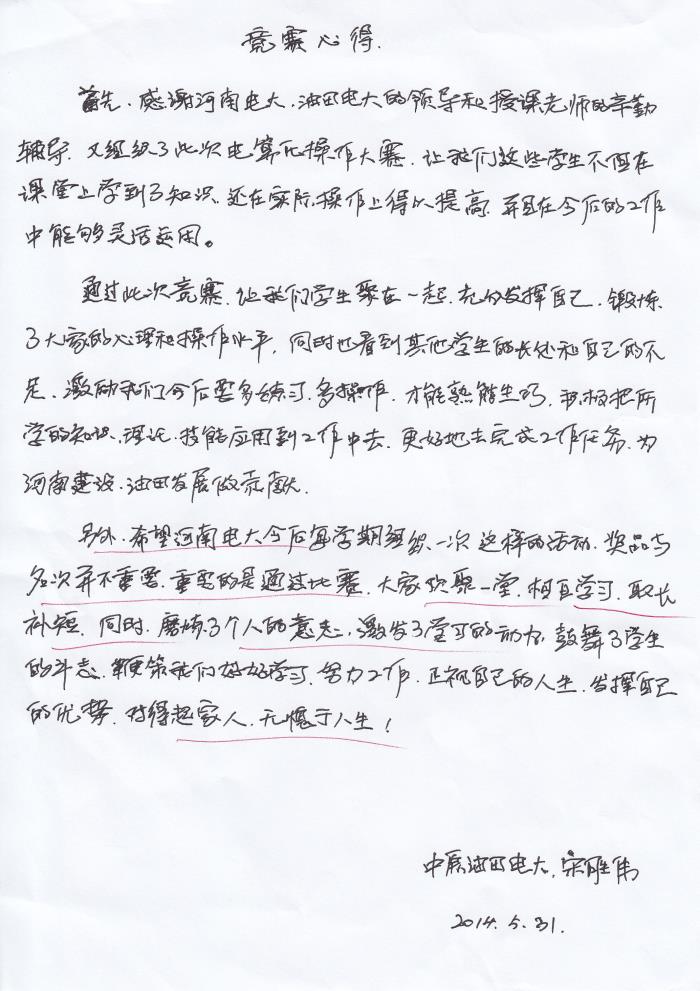 竞赛心得.
首先、感谢河南电大、油田电大的领导和授课老师的辛勤
辅导、又组织了此次电算化操作大赛、让我们这些学生不但在
课堂上学到了知识、还在实际操作上得以提高、并且在今后的工作
中能够灵活运用。
通过此次竞赛、让我们学生聚在一起、充分发挥自己、锻炼
了大家的心理和操作水平，同时也看到其他学生的长处和自己的不
足、激励我们今后要多练习、多操作、才能熟能生巧、积极把所
学的知识、理论、技能应用到工作中去、更好地去完成工作任务、为
河南建设、油田发展做贡献.
另外、希望河南电大今后每学期组织一次这样的活动、奖品与
名次并不重要、重要的是通过比赛、大家欢聚一堂、相互学习、取长
补短、同时、磨炼了个人的意志、激发了学习的动力、鼓舞了学生
的斗志、鞭策我们好好学习、努力工作、正视自己的人生、发挥自己
的优势、对得起家人、无愧于人生！
中原油田电大、宋胜伟
2014.5.31.